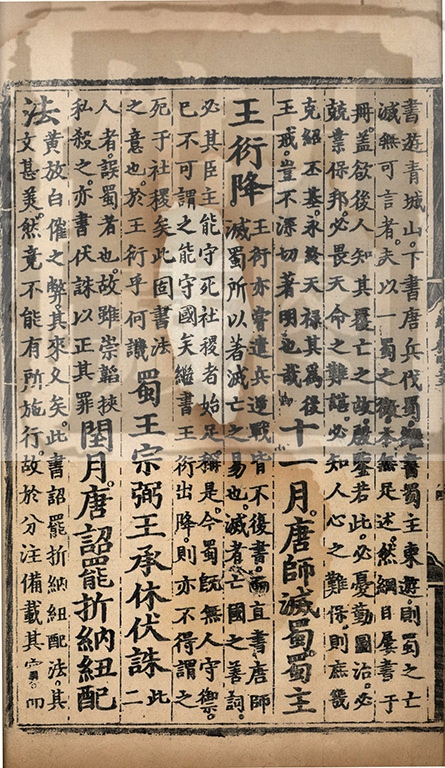 書遊青城山下書唐兵伐蜀繼書蜀主東遊則蜀之亡
滅無可言者夫以一蜀之微本無足述然綱目屢書于
冊蓋欲後人知其覆亡之故殷鑒若此必憂勤圖治必
兢業保邦必畏天命之難諶必知人心之難保則庶幾
克紹丕基永終天祿其為後
王戒豈不深切著明也哉
十一月唐師滅蜀蜀主
王衍降
王衍亦嘗遣兵逆戰皆不復書而直書唐師
滅蜀所以著滅亡之易也滅者亡國之善詞
必其臣主能守死社稷者始足稱是今蜀旣無人守禦
已不可謂之能守國矣繼書王衍出降則亦不得謂之
死于社稷矣此固書法
之意也於王衍乎何譏
蜀王宗弼王承休伏誅
此
二
人者誤蜀者也故雖崇韜挾
私殺之亦書伏誅以正其罪
閏月唐詔罷折納紐配
法
黃放白催之弊其來久矣此書詔罷折納紐配法其
文甚美然竟不能有所施行故於分注備載其而